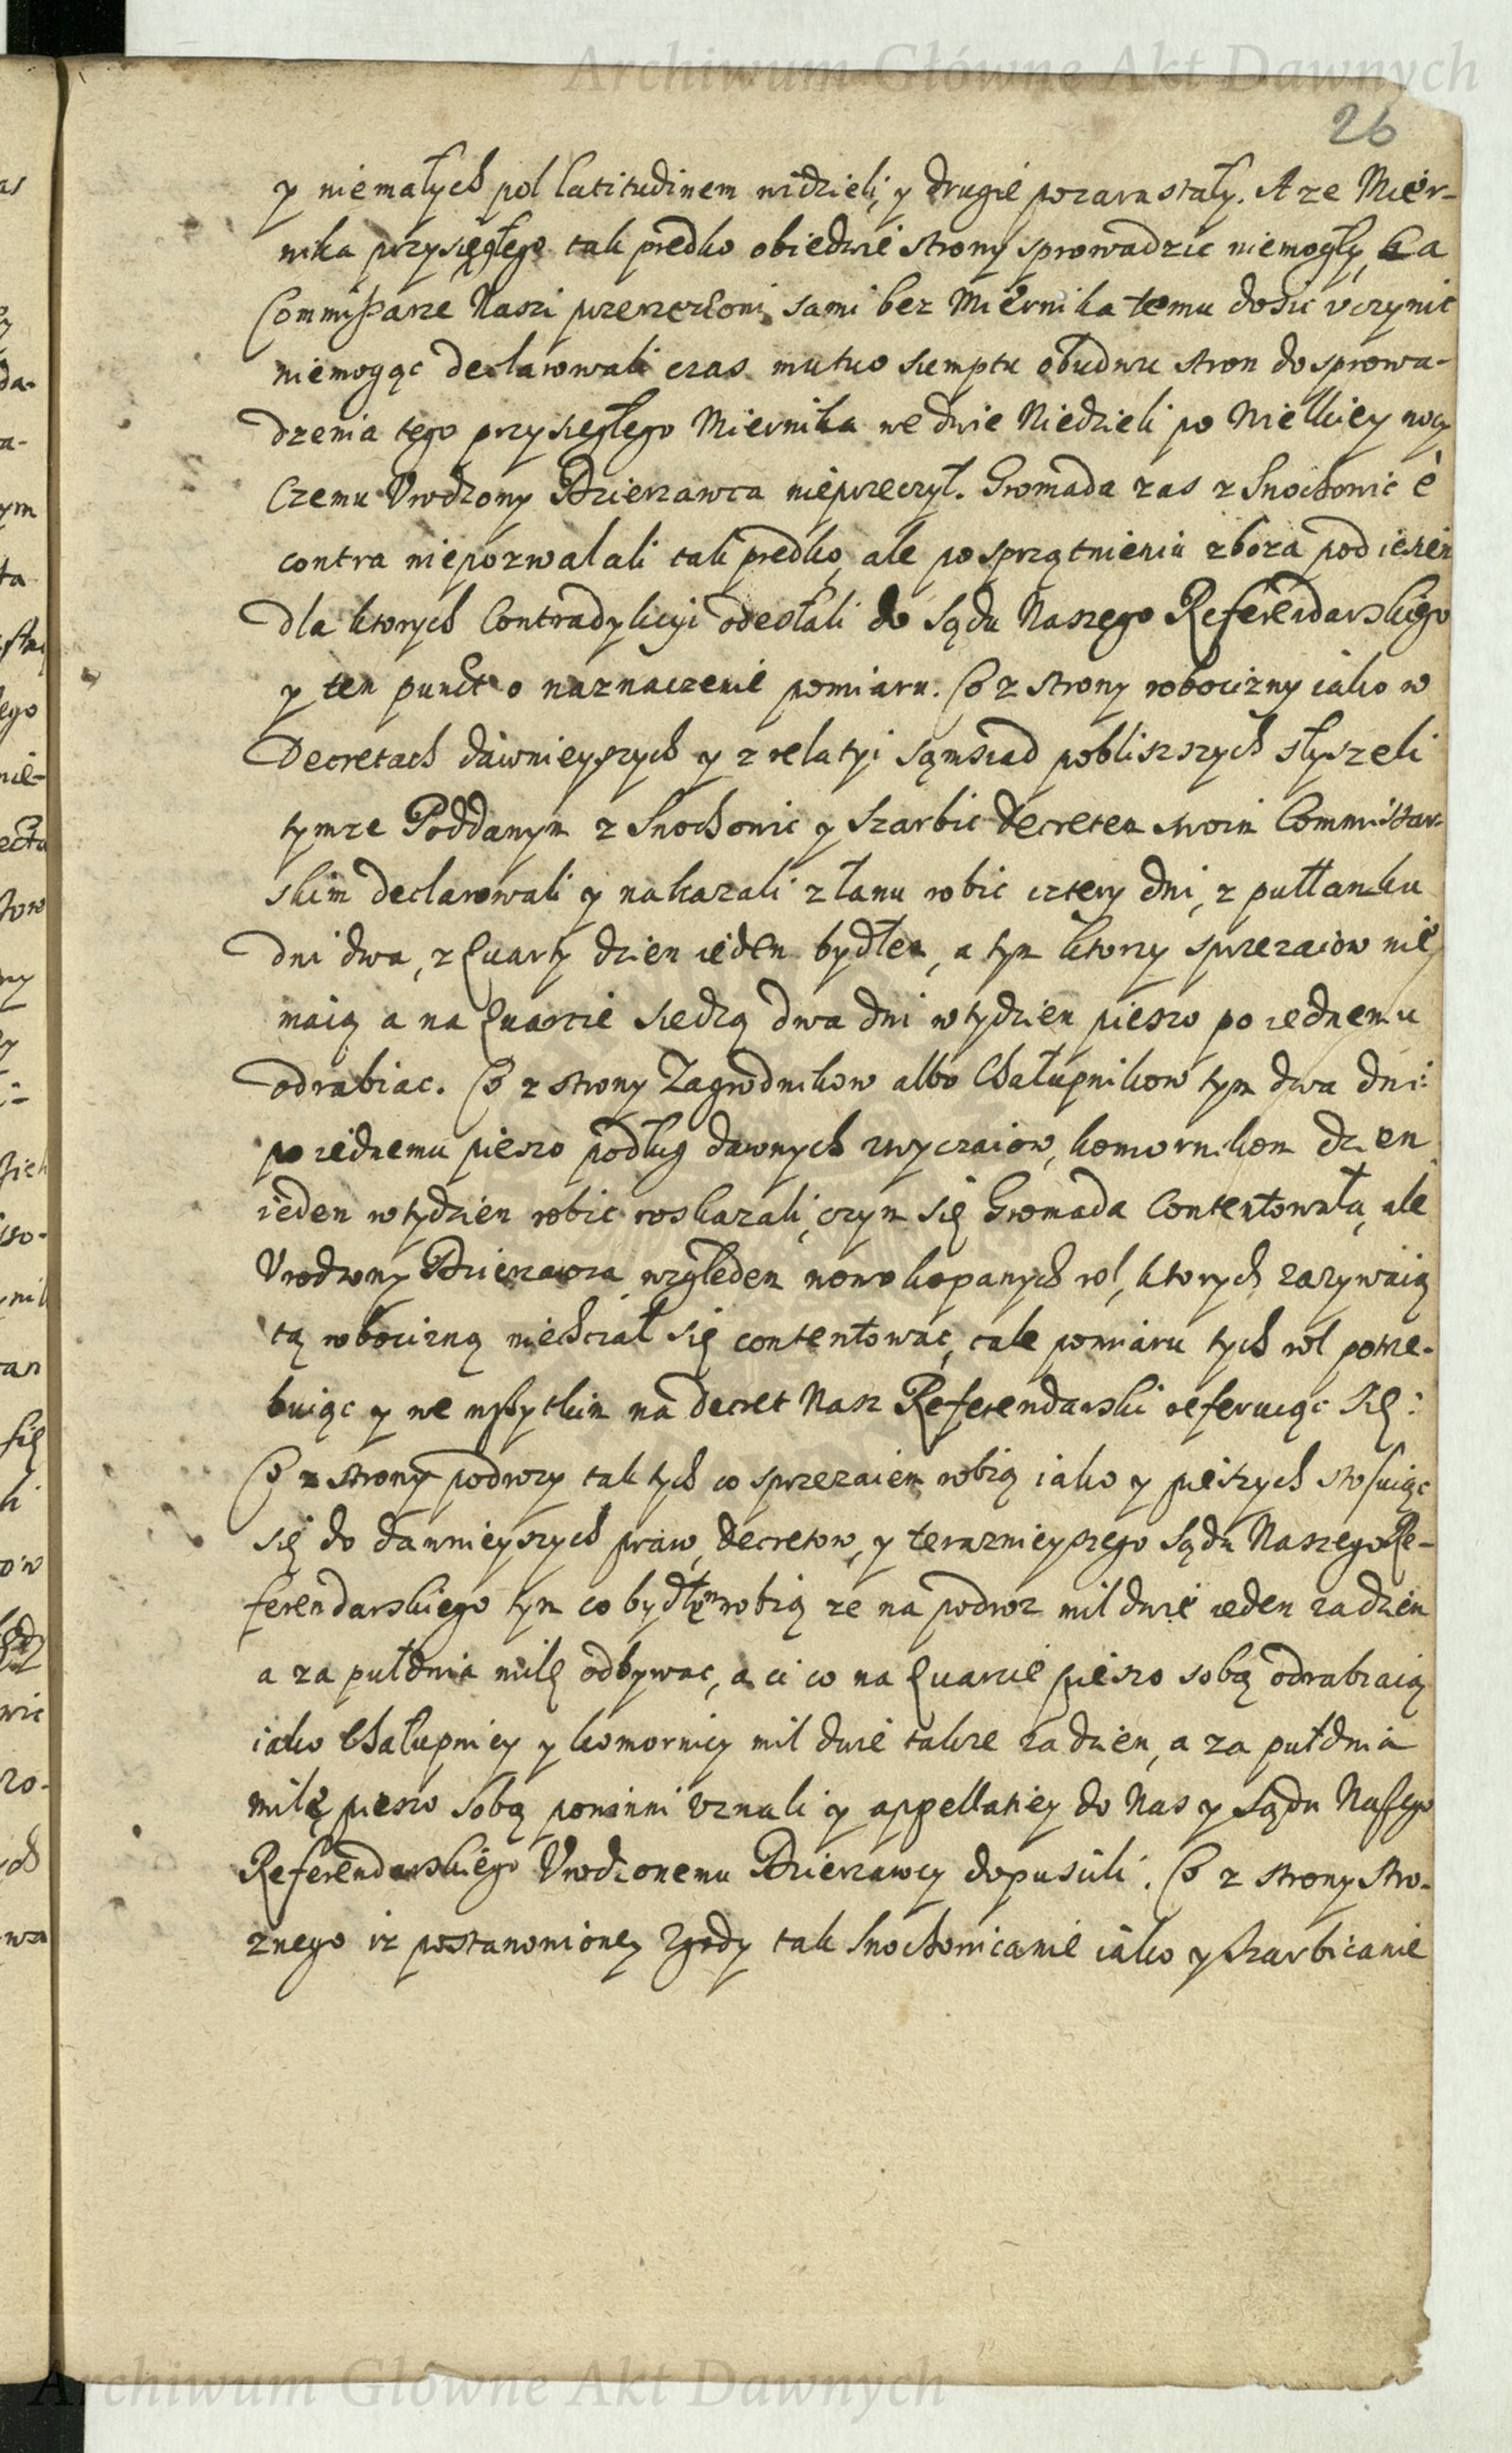 Archiwum Główne Akt Dawnych
26
y niemałych pol latitudinem widzieli, y drugie pozarastały. A ze Mier-
nika przysięgłego tak prędko obiedwie strony sprowadzic niemogły, a
Commissarze Naszi przerzeczoni sami bez Miernika temu dosic vczynic
niemogąc declarowali czas mutuo sumptu obudwu stron do sprowa-
dzenia tego przysięgłego Miernika we dwie Niedzieli po Wielkiey nocy
Czemu Vrodzony Dzierzawca nieprzeczył. Gromada zas z Snochowic è
contra niepozwalali tak prędko, ale po sprzątnieniu zboza pod iesien
dla ktorych Contradykcyi odesłali do Sądu Naszego Referendarskiego
y ten punct o naznaczenie pomiaru. Co z strony robocizny iako w
Decretach dawnieyszych y z relatyi sąmsiad pobliszszych słyszeli
tymze Poddanym z Snochowic y Szarbic decretem swoim Commissar-
skim declarowali y nakazali z łanu robic cztery dni, z pułłanku
dni dwa, z Quarty dzien ieden bydłem, a tym ktorzy sprzezaiow nie
maią a na Quarcie siedzą dwa dni w tydzien pieszo po iednemu
odrabiac. Co z strony Zagrodnikow albo Chałupnikow tym dwa dni
po iednemu pieszo podług dawnych zwyczaiow, komornikom dzien
ieden w tydzien robic roskazali, czym się Gromada Contentowała, ale
Vrodzony Dzierzawca względem nowo kopanych rol, ktorych zazywaią
tą robocizną niechciał się contentowac, cale pomiaru tych rol potrze-
buiąc y we wszytkim na decret Nasz Referendarski referuiąc się:
Co z strony podrozy tak tych co sprzezaiem robią iako y pieszych stosuiąc
się do dawnieyszych praw, decretow, y teraznieyszego Sądu Naszego Re-
ferendarskiego tym co bydłem robią ze na podroz mil dwie ieden za dzien
a za pułdnia milę odbywac, a ci co na Quarcie pieszo sobą odrabiaią
iako Chałupnicy y komornicy mil dwie takze za dzien, a za pułdnia
milę pieszo sobą powinni vznali y appellatiey do Nas y Sądu Naszego
Referendarskiego Vrodzonemu Dzierzawcy dopuscili. Co z strony Stro-
znego iz postanowioney Zgody tak Snochowicanie iako y Szarbicanie
Archiwum Główne Akt Dawnych